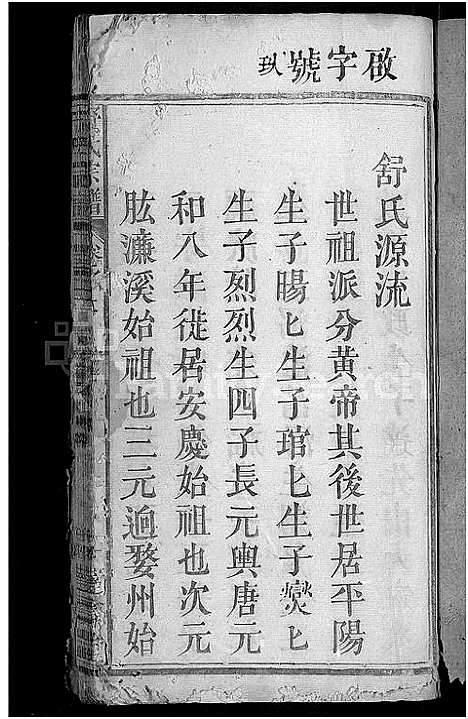 啟字號玖
舒氏源流
世祖派分黃帝其後世居平陽
生子暘匕生子琯匕生子爕匕
生子烈烈生四子長元輿唐元
和八年徙居安慶始祖也次元
肱濂溪始祖也三元迥婺州始